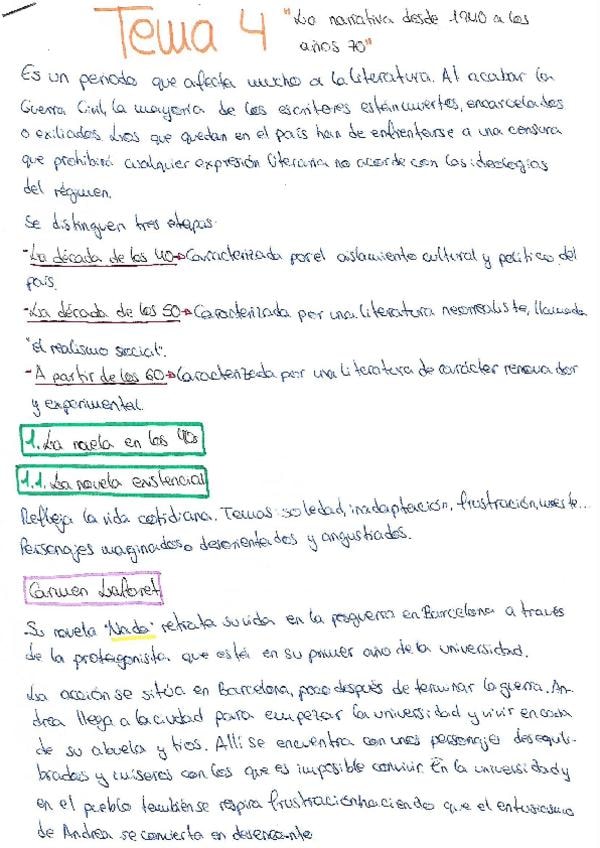 Tema 4 "La narrativa desde 1940 a los
años 70"
Es un periodo que afecta mucho a la literatura. Al acabar la
Guerra Civil, la mayoría de los escritores están muertos, encarcelados
o exiliados. Los que quedan en el país han de enfrentarse a una censura
que prohibirá cualquier expresión literaria no acorde con las ideologías
del régimen.
Se distinguen tres etapas.
-La década de los 40→Caracterizada por el aislamiento cultural y político del
país.
-La década de los 50→Caracterizada por una literatura neorrealiste, llamada
"el realismo social".
-A partir de los 60→Caracterizada por una literatura de carácter renovador
y experimental.
1. La novela en los 40s
1.1. La novela existencial
Refleja la vida cotidiana. Temas: soledad, inadaptación, frustración, muerte...
Personajes marginados o desorientados y angustiados.
Carmen Laforet
-Su novela "Nada" retrata su vida en la posguerra en Barcelona a través
de la protagonista que está en su primer año de la universidad.
La acción se sitúa en Barcelona, poco después de terminar la guerra. An-
drea llega a la ciudad para empezar la universidad y vivir en casa
de su abuela y tíos. Allí se encuentra con unos personajes desequili-
brados y míseros con los que es imposible convivir. En la universidad y
en el pueblo también se respira frustración haciendo que el entusiasmo
de Andrea se convierta en desencante